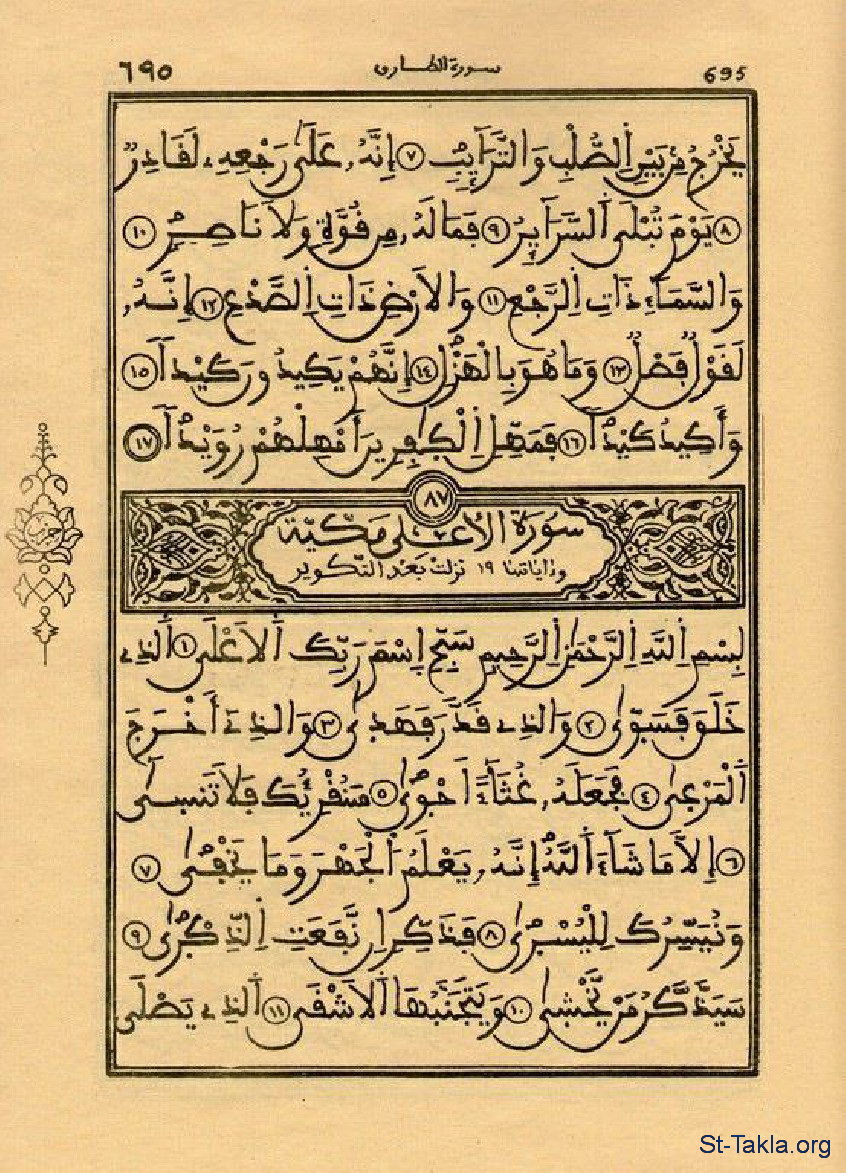 695 سورة الطارق ٦٩٥
يَخْرُجُ مِنۢ بَيْنِ اِ۬لصُّلْبِ وَالتَّرَآئِبِ ٧ إِنَّهُۥ عَلَىٰ رَجْعِهِۦ لَقَادِرٌ
٨ يَوْمَ تُبْلَى اَ۬لسَّرَآئِرُ ٩ فَمَا لَهُۥ مِن قُوَّةٍ وَلَا نَاصِرٍ ١٠
وَالسَّمَآءِ ذَاتِ اِ۬لرَّجْعِ ١١ وَالْأَرْضِ ذَاتِ اِ۬لصَّدْعِ ١٢ إِنَّهُۥ
لَقَوْلٌ فَصْلٌ ١٣ وَمَا هُوَ بِالْهَزْلِ ١٤ إِنَّهُمْ يَكِيدُونَ كَيْداً ١٥
وَأَكِيدُ كَيْداً ١٦ فَمَهِّلِ اِ۬لْكَٰفِرِينَ أَمْهِلْهُمْ رُوَيْداً ١٧
٨٧
سُورَةُ الْأَعْلَى مَكِّيَّة
وءاياتها ١٩ نزلت بعد التكوير
بِسْمِ اِ۬للَّهِ اِ۬لرَّحْمَٰنِ اِ۬لرَّحِيمِ سَبِّحِ اِ۪سْمَ رَبِّكَ اَ۬لْأَعْلَى ١ اَ۬لذِے
خَلَقَ فَسَوّىٰ ٢ وَالذِے قَدَّرَ فَهَدىٰ ٣ وَالذِےٓ أَخْرَجَ
اَ۬لْمَرْعىٰ ٤ فَجَعَلَهُۥ غُثَآءً اَحْوىٰ ٥ سَنُقْرِئُكَ فَلَا تَنسىٰٓ
٦ إِلَّا مَا شَآءَ اَ۬للَّهُ إِنَّهُۥ يَعْلَمُ اُ۬لْجَهْرَ وَمَا يَخْفىٰ ٧
وَنُيَسِّرُكَ لِلْيُسْرىٰ ٨ فَذَكِّرِ اِن نَّفَعَتِ اِ۬لذِّكْرىٰ ٩
سَيَذَّكَّرُ مَنْ يَّخْشىٰ ١٠ وَيَتَجَنَّبُهَا اَ۬لْأَشْقَى ١١ اَ۬لذِے يَصْلَى
St-Takla.org